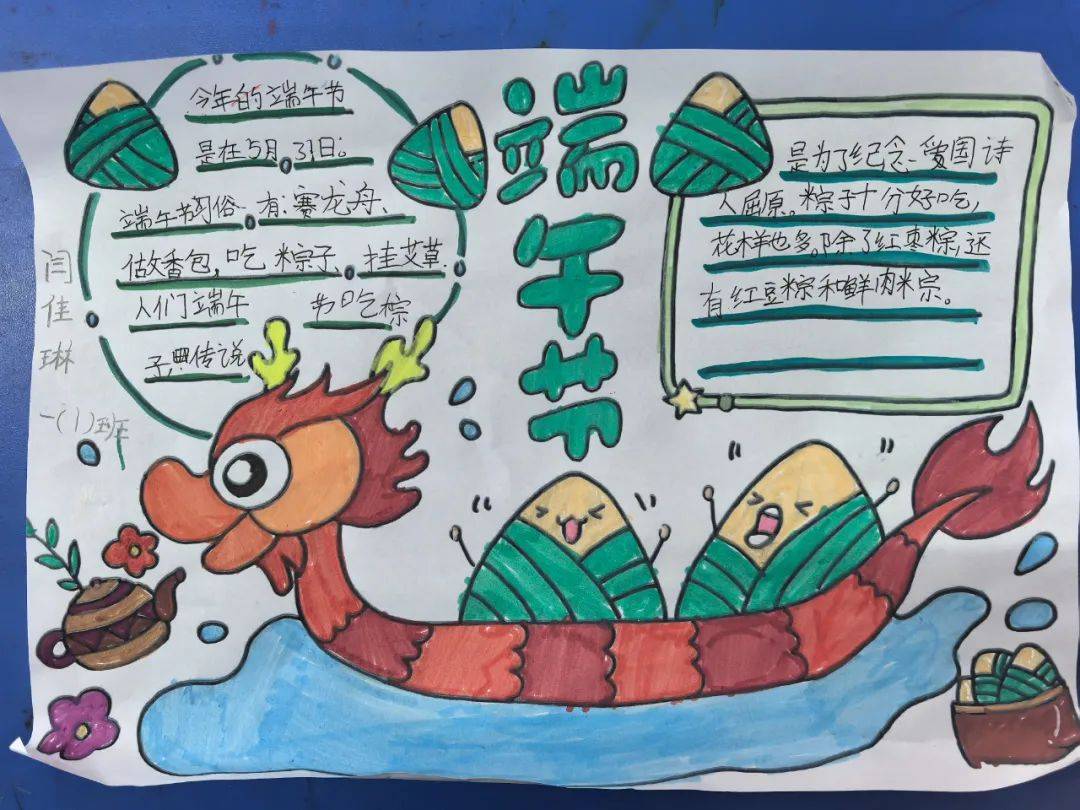 今年的端午节
是在5月31日。
端午节习俗有赛龙舟、
做香包,吃粽子、挂艾草.
人们端午节吃粽
子,典传说
端午节
是为了纪念爱国诗
人屈原。粽子十分好吃,
花样也多,除了红枣粽,还
有红豆粽和鲜肉粽。
闫佳琳
一(1)班